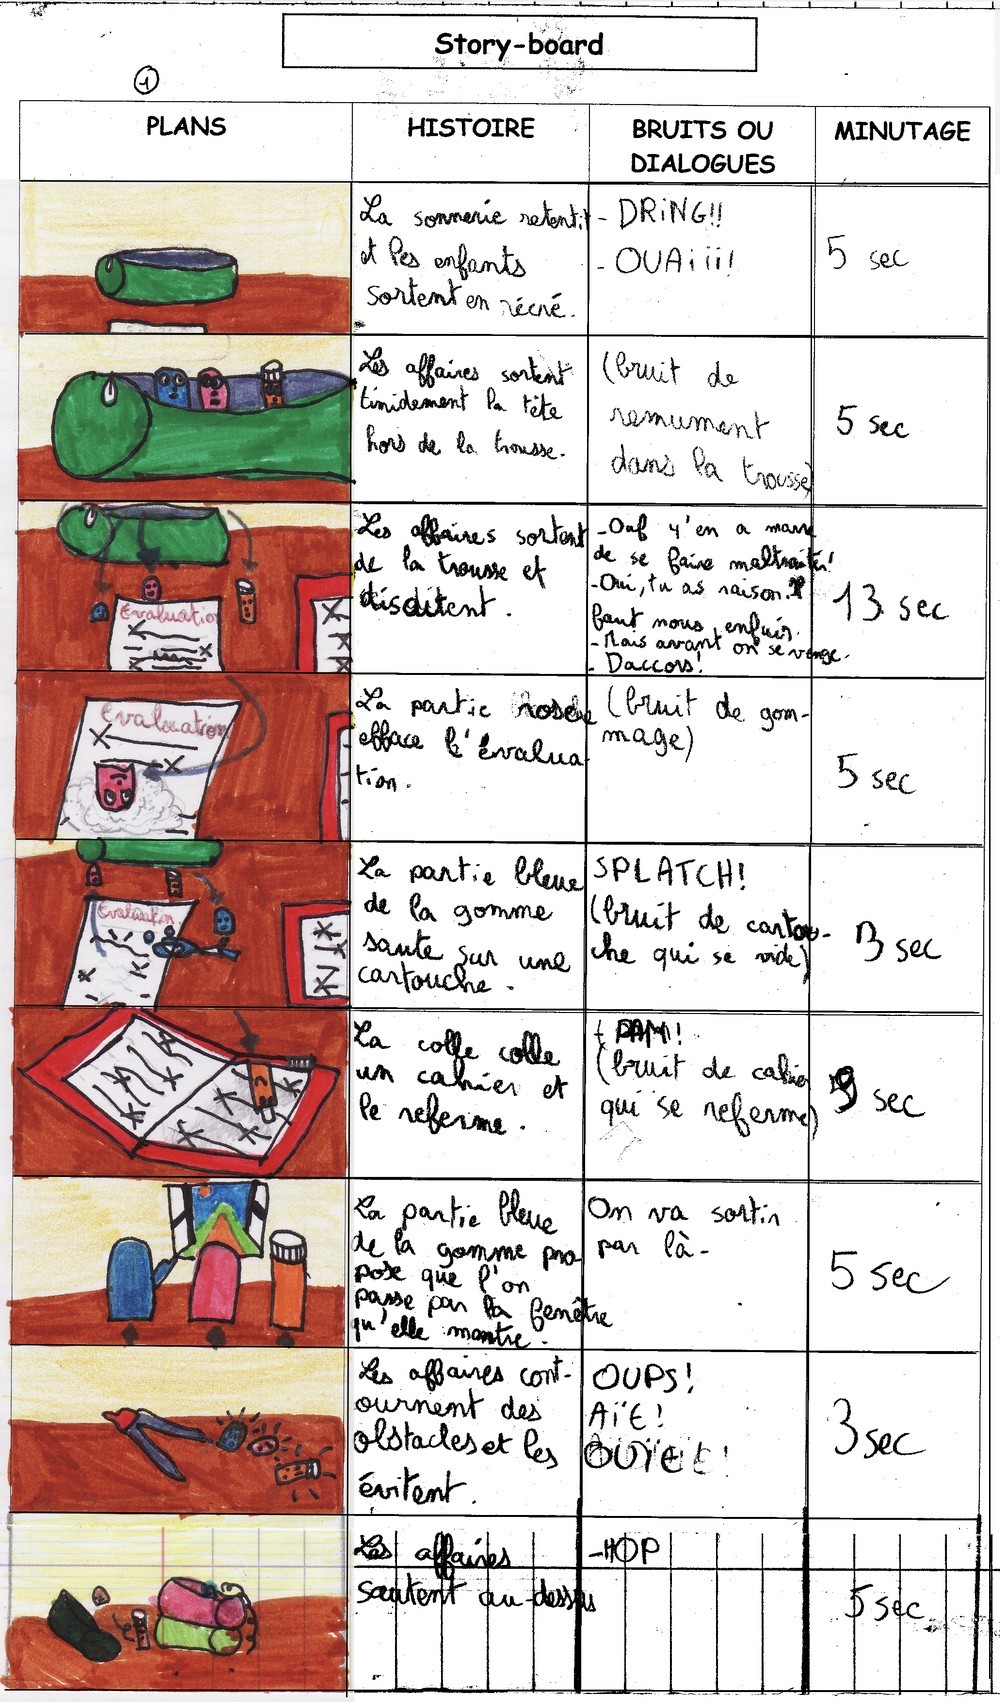 Story-board
1
PLANS
HISTOIRE
BRUITS OU
DIALOGUES
MINUTAGE
La sonnerie retentit
et les enfants
sortent en récré.
- DRiNG!!
- OUAiiii!
5 sec
Les affaires sortent
timidement la tête
hors de la trousse.
(bruit de
remument
dans la trousse)
5 sec
Evaluation
Les affaires sortent
de la trousse et
- Ouf y'en a marre
de se faire maltraiter!
- Oui, tu as raison.
faut nous enfuir.
- Mais avant on se venge.
- Daccors!
13 sec
Evaluation
La partie rose
efface l'évalua
tion.
(bruit de gom-
mage)
5 sec
Evaluation
La partie bleue
de la gomme
saute sur une
cartouche.
SPLATCH!
(bruit de cartou-
che qui se vide)
3 sec
La colle colle
un cahier et
le referme.
- PAM!
(bruit de cahier
qui se referme)
9 sec
La partie bleue
de la gomme pro-
pose que l'on
passe par la fenêtre
qu'elle montre.
On va sortir
par là-
5 sec
Les affaires cont-
ournent des
obstacles et les
évitent.
OUPS!
AïE!
3 sec
Les affaires
sautent au-dessus
-HOP
5 sec